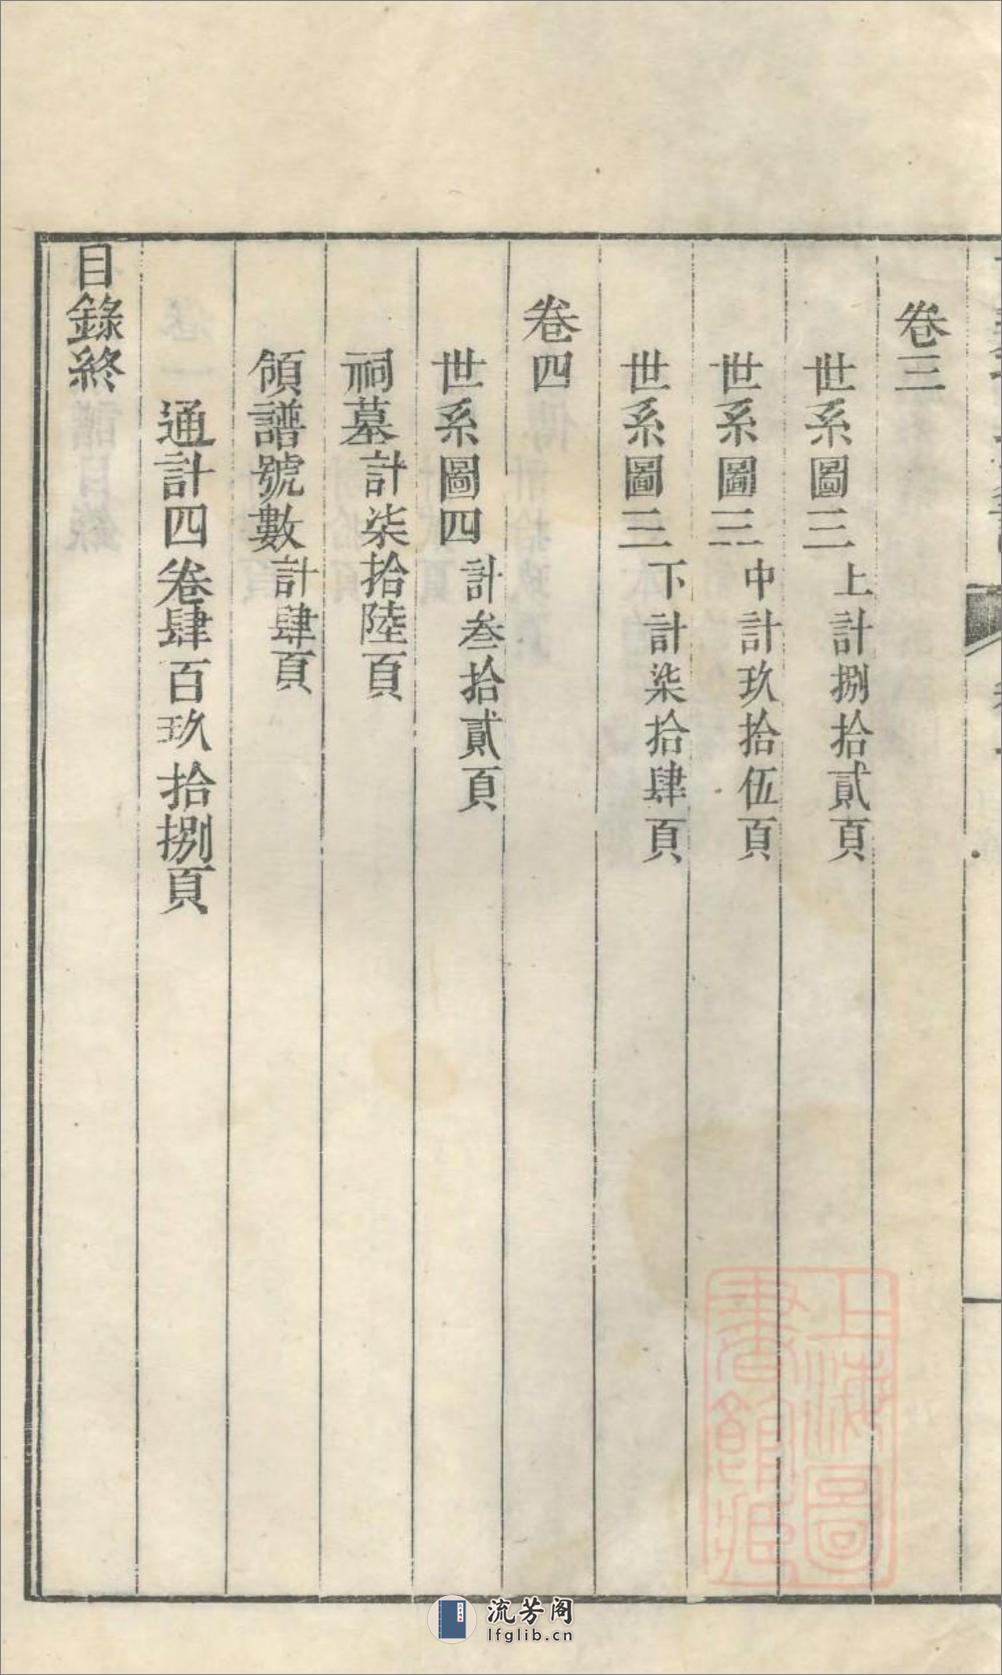 卷三
世系圖三上計捌拾貳頁
世系圖三中計玖拾伍頁
世系圖三下計柒拾肆頁
卷四
世系圖四計叁拾貳頁
祠墓計柒拾陸頁
領譜號數計肆頁
通計四卷肆百玖拾捌頁
目錄終
上海圖
書館藏
流芳阁
lfglib.cn